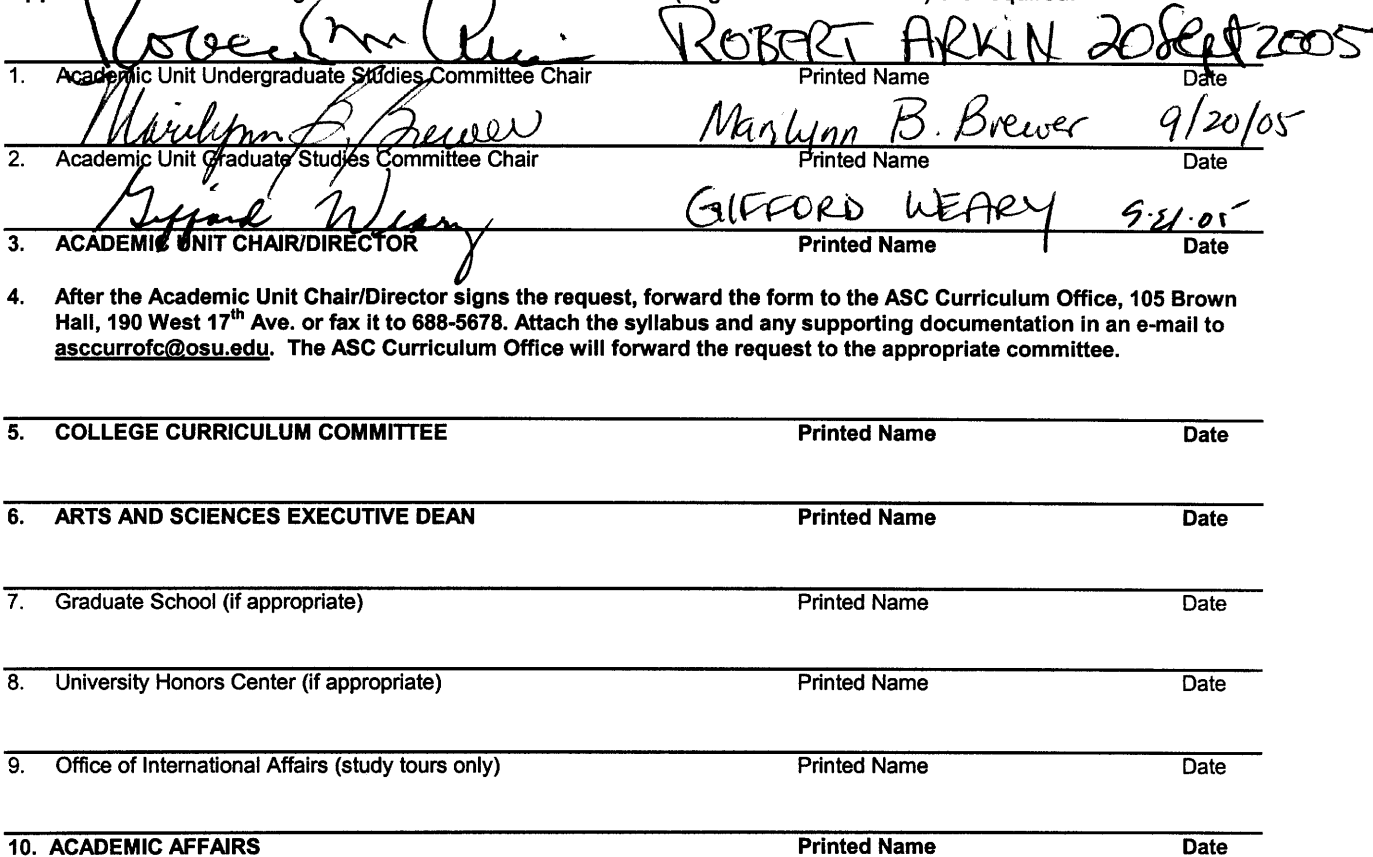 ROBERT ARKIN 20 Sept 2005
1. Academic Unit Undergraduate Studies Committee Chair Printed Name Date
Marilynn B. Brewer Marilynn B. Brewer 9/20/05
2. Academic Unit Graduate Studies Committee Chair Printed Name Date
Gifford Weary GIFFORD WEARY
3. ACADEMIC UNIT CHAIR/DIRECTOR Printed Name Date
4. After the Academic Unit Chair/Director signs the request, forward the form to the ASC Curriculum Office, 105 Brown
Hall, 190 West 17th Ave. or fax it to 688-5678. Attach the syllabus and any supporting documentation in an e-mail to
asccurrofc@osu.edu. The ASC Curriculum Office will forward the request to the appropriate committee.
5. COLLEGE CURRICULUM COMMITTEE Printed Name Date
6. ARTS AND SCIENCES EXECUTIVE DEAN Printed Name Date
7. Graduate School (if appropriate) Printed Name Date
8. University Honors Center (if appropriate) Printed Name Date
9. Office of International Affairs (study tours only) Printed Name Date
10. ACADEMIC AFFAIRS Printed Name Date